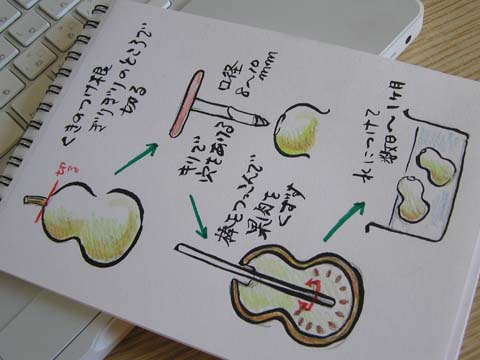 くきのつけ根
ぎりぎりのところで
切る
切る
口径
8～10
mm
キリで
穴をあける
棒をつっこんで
果肉を
くずす
水につけて
数日～1ヶ月